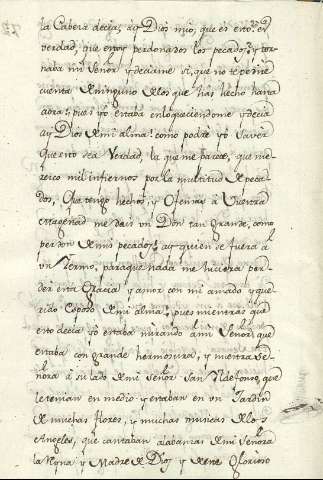 la Cabeza decia, ay Dios mio, que es esto? es
verdad, que estoy perdonados los pecados? y tor
naba mi Señor y deciame si, que no te pedire
cuenta de ninguno de los que has hecho hasta
aora; pues yo estaba enloqueciendome y decia
ay Dios de mi alma! como podre yo saver
que no sea Verdad, la que me parece, que me
rezco mil infiernos por la multitud de peca
dos, que tengo hechos, y Ofensas a Vuestra
Magestad me dais un Don tan grande, como
perdon de mis pecados? ay quien se fuera a
un Yermo, para que nada me hiciera per
der esta Gracia y amor con mi amado y que
rido Esposo de mi alma; pues mientras que
esto decia yo estaba mirando a mi Señor que
estaba con grande hermosura, y nuestra Se
ñora a su lado de mi Señor San Ildefonso, que
le tenian en medio y estaban en un Jardin
de muchas flores, y muchas musicas de los
Angeles, que cantaban alabanzas de mi Señora
la Reyna y Madre de Dios y de este Glorioso